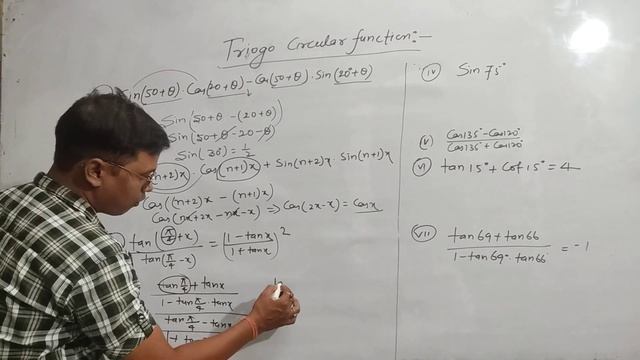 Triogo Circular function:-
Sin(50+θ)·Cos(20+θ)-Cos(50+θ)·Sin(20°+θ)
Sin(50+θ-(20+θ))
Sin(50+θ-20-θ)
Sin(30°)=1/2
(n+2)x)·Cos(n+1)x+Sin(n+2)x·Sin(n+1)x
Cos((n+2)x-(n+1)x)
Cos(nx+2x-nx-x) ⇒ Cos(2x-x)=Cosx
tan(π/4+x)/tan(π/4-x)=(1-tanx/1+tanx)²
tan π/4+tanx
1-tan π/4·tanx
tan π/4-tanx
iv Sin 75°
v Cos135°-Cos120°/Cos135°+Cos120°
vi tan15°+Cot15°=4
vii tan69+tan66/1-tan69·tan66=-1